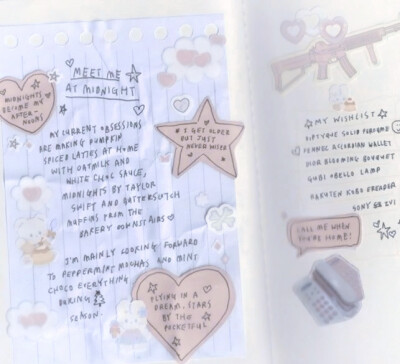 MEET ME
AT MIDNIGHT
MIDNIGHTS
BECOME MY
AFTER-
NOONS
MY CURRENT OBSESSIONS
ARE MAKING PUMPKIN
SPICED LATTES AT HOME
WITH OATMILK AND
WHITE CHOC SAUCE,
MIDNIGHTS BY TAYLOR
SWIFT AND BUTTERSCOTCH
MUFFINS FROM THE
BAKERY DOWNSTAIRS
I'M MAINLY LOOKING FORWARD
TO PEPPERMINT MOCHAS AND MINT
CHOCO EVERYTHING
DURING
SEASON.
I GET OLDER
BUT JUST
NEVER WISER
FLYING IN A
DREAM, STARS
BY THE
POCKETFUL
MY WISHLIST
DIPTYQUE SOLID PERFUME
CHANEL ACCORDION WALLET
DIOR BLOOMING BOUQUET
GUBI OBELLO LAMP
RAKUTEN KOBO EREADER
SONY
CALL ME WHEN
YOU'RE HOME!